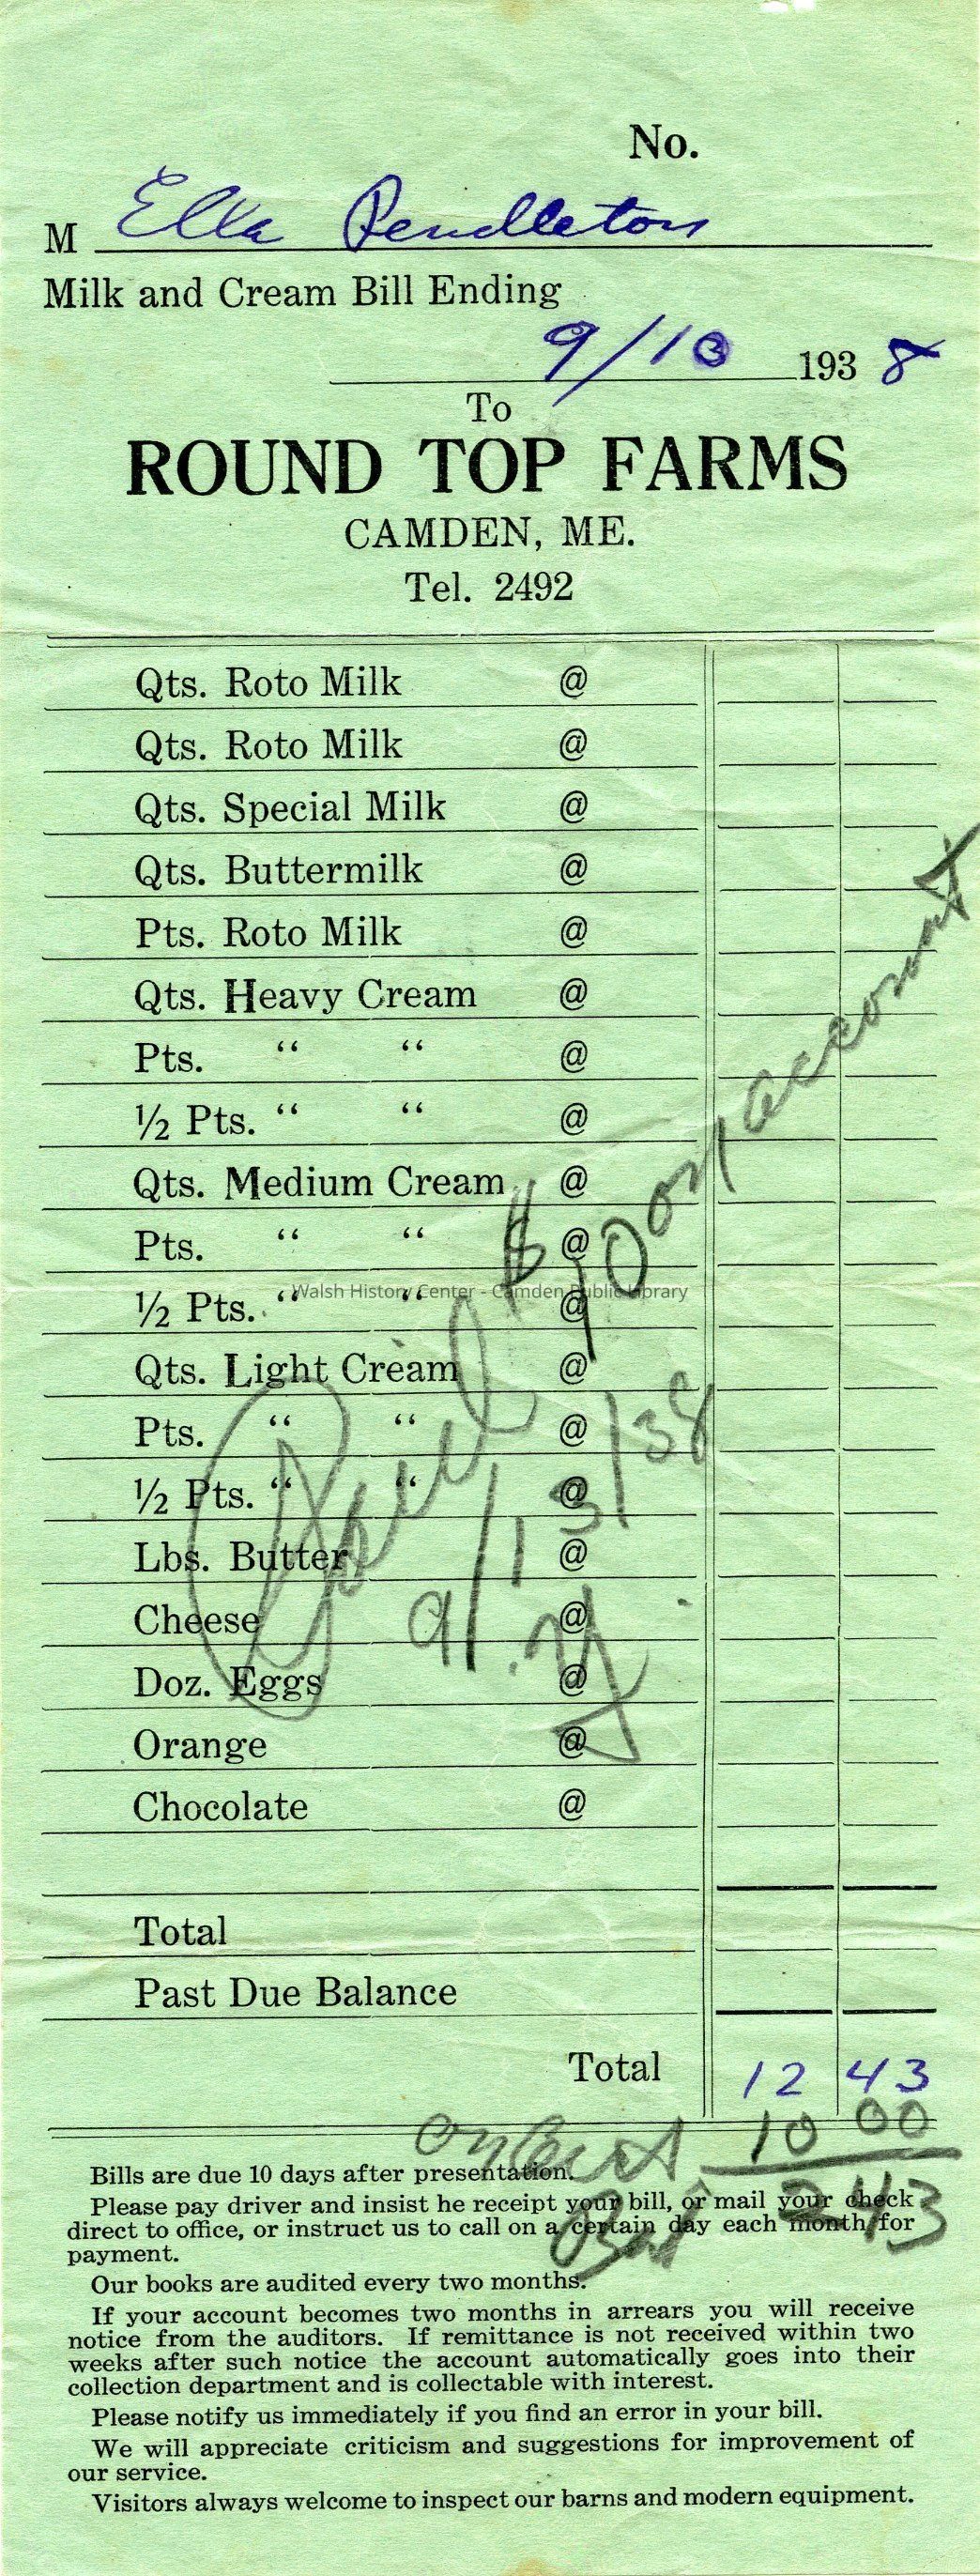 No.
M Ella Pendleton
Milk and Cream Bill Ending
9/13 1938
To
ROUND TOP FARMS
CAMDEN, ME.
Tel. 2492
Qts. Roto Milk @
Qts. Roto Milk @
Qts. Special Milk @
Qts. Buttermilk @
Pts. Roto Milk @
Qts. Heavy Cream @
Pts. “ “ @
½ Pts. “ “ @
Qts. Medium Cream @
Pts. “ “ @
Walsh History Center - Camden Public Library
½ Pts. “ “ @
Qts. Light Cream @
Pts. “ “ @
½ Pts. “ “ @
Lbs. Butter @
Cheese @
Doz. Eggs @
Orange @
Chocolate @
Paid $10 on account
9/13/38
Total
Past Due Balance
Total 12 43
10 00
Bal 2 43
Bills are due 10 days after presentation.
Please pay driver and insist he receipt your bill, or mail your check
direct to office, or instruct us to call on a certain day each month for
payment.
Our books are audited every two months.
If your account becomes two months in arrears you will receive
notice from the auditors. If remittance is not received within two
weeks after such notice the account automatically goes into their
collection department and is collectable with interest.
Please notify us immediately if you find an error in your bill.
We will appreciate criticism and suggestions for improvement of
our service.
Visitors always welcome to inspect our barns and modern equipment.